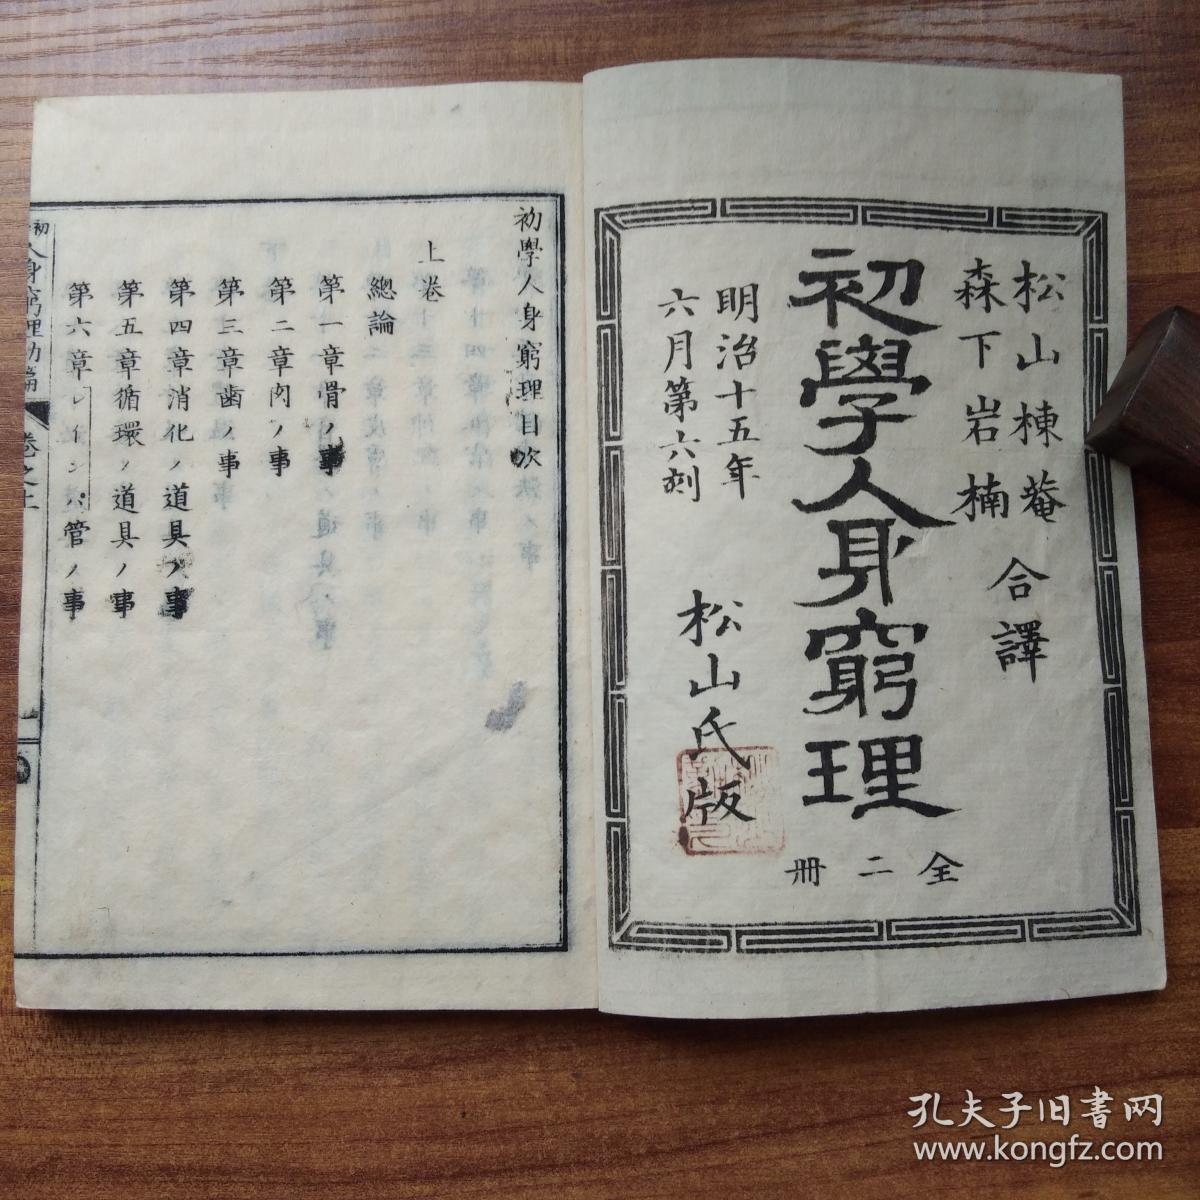 松山棟菴
森下岩楠
合譯
初學人身窮理
全二冊
明治十五年
六月第六刻
松山氏版
初學人身窮理目次
上卷
總論
第一章骨ノ事
第二章肉ノ事
第三章齒ノ事
第四章消化ノ道具ノ事
第五章循環ノ道具ノ事
第六章
管ノ事
人身窮理
卷之上
孔夫子旧书网
www.kongfz.com